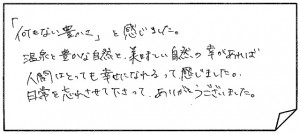 「何もない豊かさ」と感じました。
温泉と豊かな自然と、美味しい自然の幸があれば
人間はとっても幸せになれるって感じました。
日常を忘れさせて下さって、ありがとうございました。